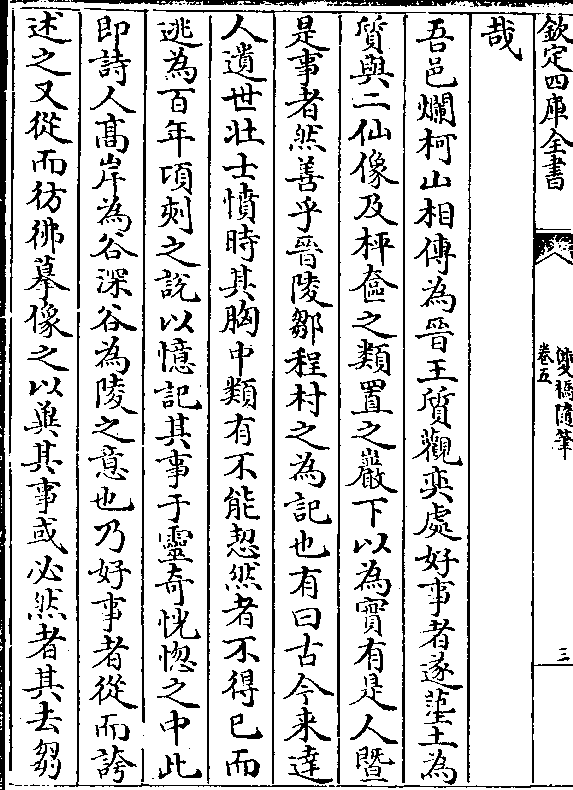 欽定四庫全書
雙橋隨筆
卷五
三
哉
吾邑爛柯山相傳為晉王質觀奕處好事者遂塑土為
質與二仙像及枰奩之類置之巖下以為實有是人暨
是事者然善乎晉陵鄒程村之為記也有曰古今来達
人遺世壮士憤時其胸中類有不能恝然者不得已而
逃為百年頃刻之說以憶記其事于靈奇恍惚之中此
即詩人髙岸為谷深谷為陵之意也乃好事者從而誇
述之又從而彷彿摹像之以典其事或必然者其去芻